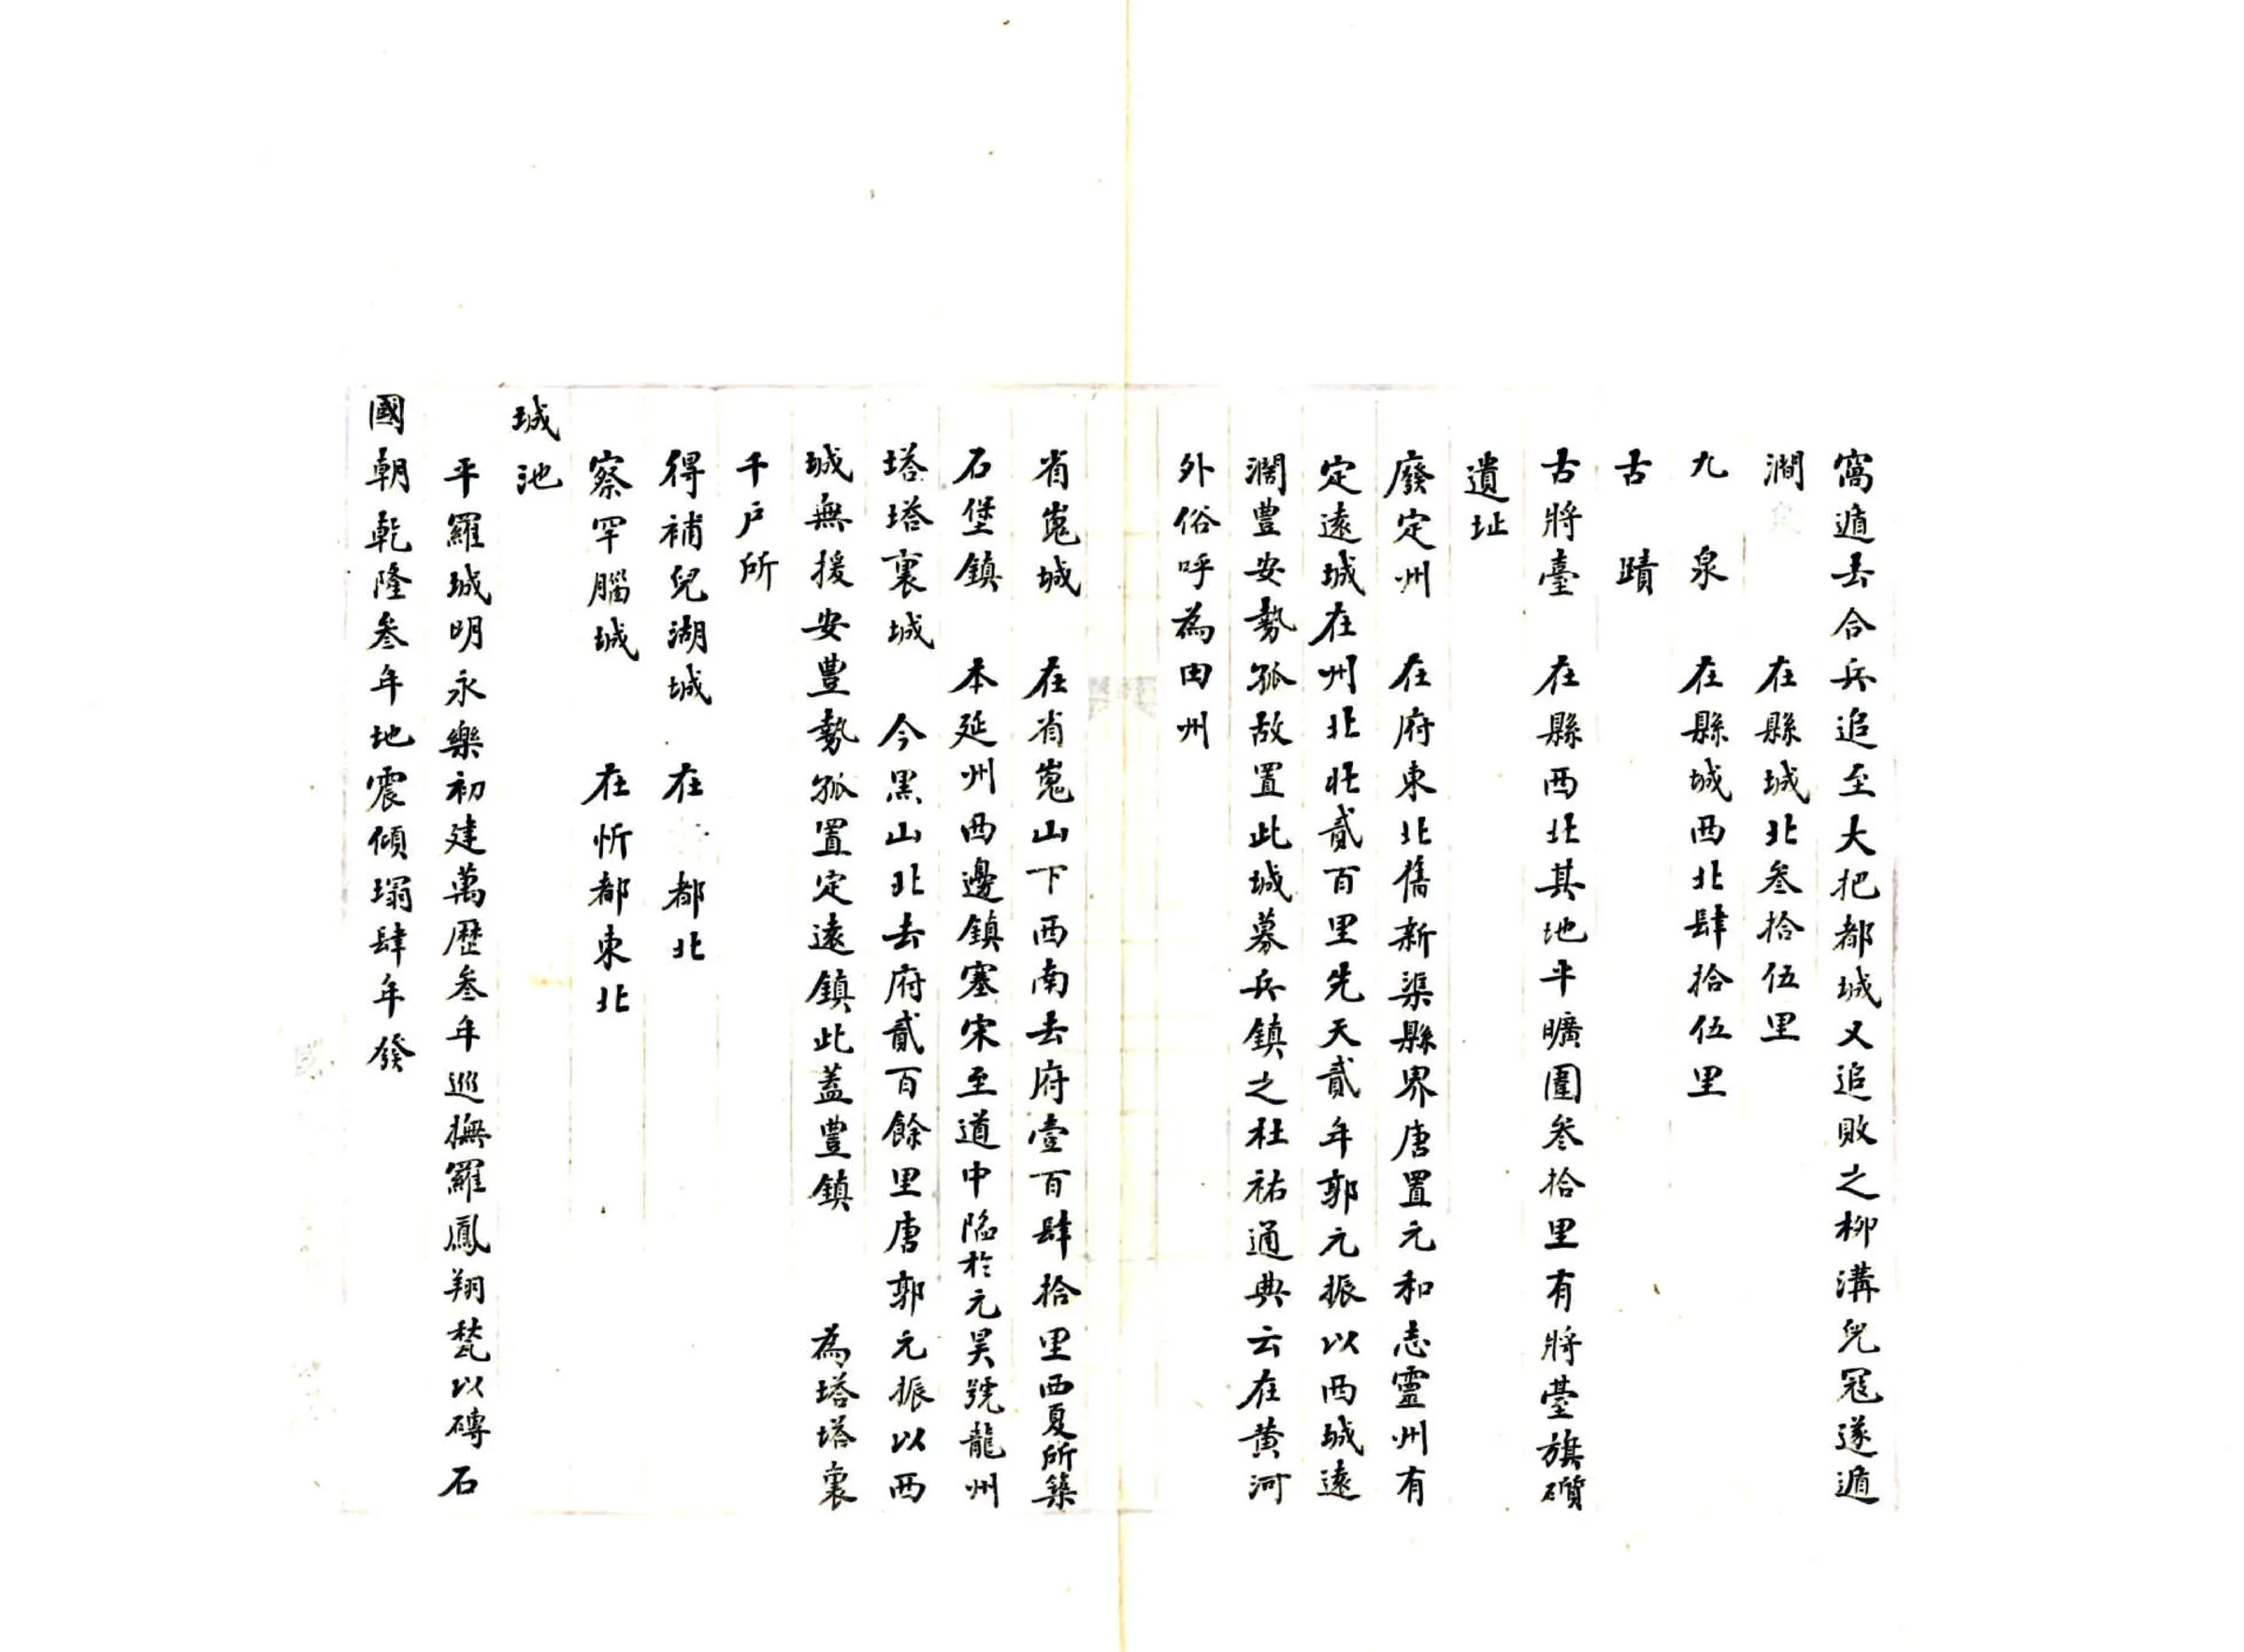 窩遁去合兵追至大把都城又追敗之柳溝兒冦遂遁
澗　在縣城北叁拾伍里
九泉　在縣城西北肆拾伍里
古蹟
古將臺　在縣西北其地平曠圍叁拾里有將臺旗礩
遺址
廢定州　在府東北舊新渠縣界唐置元和志靈州有
定遠城在州北北貳百里先天貳年郭元振以西城遠
濶豊安勢孤故置此城募兵鎮之杜祐通典云在黄河
外俗呼為田州
省嵬城　在省嵬山下西南去府壹百肆拾里西夏所築
石堡鎮　本延州西邊鎮塞宋至道中陷於元昊號龍州
塔塔裏城　今黑山北去府貳百餘里唐郭元振以西
城無援安豊勢孤置定遠鎮此蓋豊鎮　為塔塔裏
千戶所
得補兒湖城　在　都北
察罕腦城　在忻都東北
城池
平羅城明永樂初建萬歷叁年巡撫羅鳳翔甃以磚石
國朝乾隆叁年地震傾塌肆年發